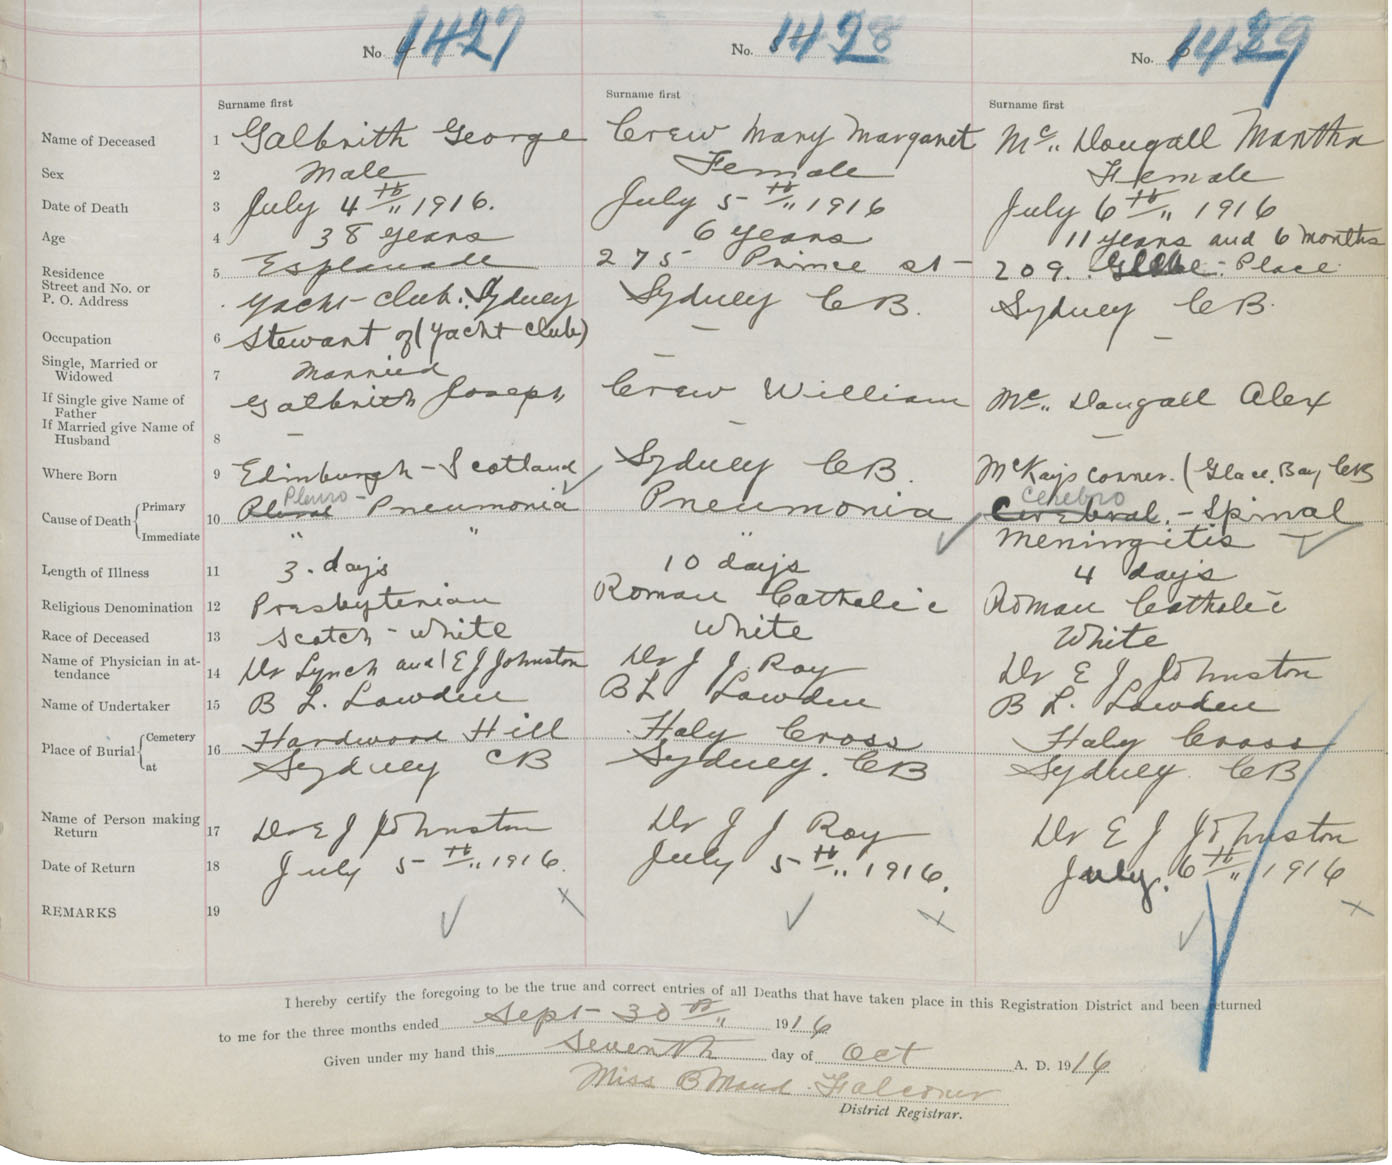 No. 4 1427
No. 5 1428
No. 6 1429
Surname first
Surname first
Surname first
Name of Deceased 1 Galbrith George
Crew Mary Margaret
Mc,, Dougall Martha
Sex 2 Male
Female
Female
Date of Death 3 July 4th,, 1916.
July 5th,, 1916
July 6th,, 1916
Age 4 38 years
6 years
11 years and 6 months
Residence
Street and No. or
P. O. Address
5 Esplanade
Yacht-Club. Sydney
275 Prince st-
Sydney CB.
209. Glebe. Place
Sydney CB.
Occupation 6 Stewart of (Yacht Club)
—
—
Single, Married or
Widowed
7 Married
—
If Single give Name of
Father
If Married give Name of
Husband
8 Galbrith Joseph
—
Crew William
—
Mc,, Dougall Alex
—
Where Born 9 Edinburgh - Scotland
Sydney CB.
McKays corner. (Glace Bay CB
Cause of Death { Primary
Immediate
10 Plural Pleuro - Pneumonia
" "
Pneumonia
"
Cerebral. Cerebro - Spinal
Meningitis
Length of Illness 11 3. days
10 days
4 days
Religious Denomination 12 Presbyterian
Roman Catholic
Roman Catholic
Race of Deceased 13 Scotch - White
White
White
Name of Physician in at-
tendance
14 Dr Lynch and E J Johnston
Dr J J Roy
Dr E J Johnston
Name of Undertaker 15 B L. Lowden
B L Lowden
B L. Lowden
Place of Burial { Cemetery
at
16 Hardwood Hill
Sydney CB
Holy Cross
Sydney. CB
Holy Cross
Sydney CB
Name of Person making
Return
17 Dr E J Johnston
Dr J J Roy
Dr E J Johnston
Date of Return 18 July 5th,, 1916.
July 5th,, 1916.
July. 6th,, 1916
REMARKS 19
I hereby certify the foregoing to be the true and correct entries of all Deaths that have taken place in this Registration District and been returned
to me for the three months ended Sept- 30th,, 1916
Given under my hand this Seventh day of Oct A. D. 1916
Miss B Maud Falconer
District Registrar.